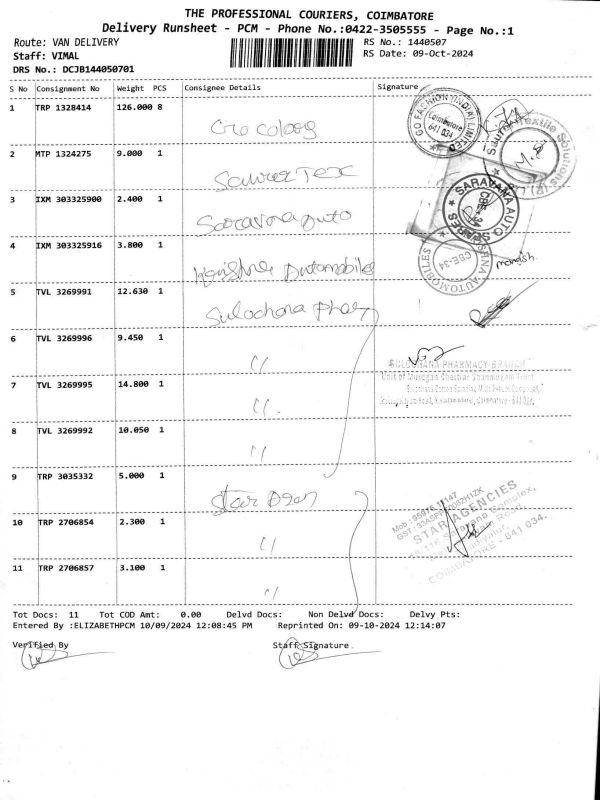 THE PROFESSIONAL COURIERS, COIMBATORE
Delivery Runsheet - PCM - Phone No.:0422-3505555 - Page No.:1
Route: VAN DELIVERY
RS No.: 1440507
Staff: VIMAL
RS Date: 09-Oct-2024
DRS No.: DCJB144050701
S No Consignment No Weight PCS Consignee Details Signature
1 TRP 1328414 126.000 8
GO FASHION (INDIA) LIMITED
Coimbatore
641 034
2 MTP 1324275 9.000 1
3 IXM 303325900 2.400 1 Saravana auto
SARAVANA AUTO
CBE-34
4 IXM 303325916 3.800 1 Automobiles
AUTOMOBILES
CBE-34
manish.
5 TVL 3269991 12.630 1 Sulochana Phar
6 TVL 3269996 9.450 1 "
SULOCHANA PHARMACY-BRANCH
7 TVL 3269995 14.800 1 "
8 TVL 3269992 10.050 1 "
9 TRP 3035332 5.000 1 Star
STAR AGENCIES
COIMBATORE - 641 034.
10 TRP 2706854 2.300 1 "
11 TRP 2706857 3.100 1 "
Tot Docs: 11 Tot COD Amt: 0.00 Delvd Docs: Non Delvd Docs: Delvy Pts:
Entered By :ELIZABETHPCM 10/09/2024 12:08:45 PM Reprinted On: 09-10-2024 12:14:07
Verified By Staff Signature